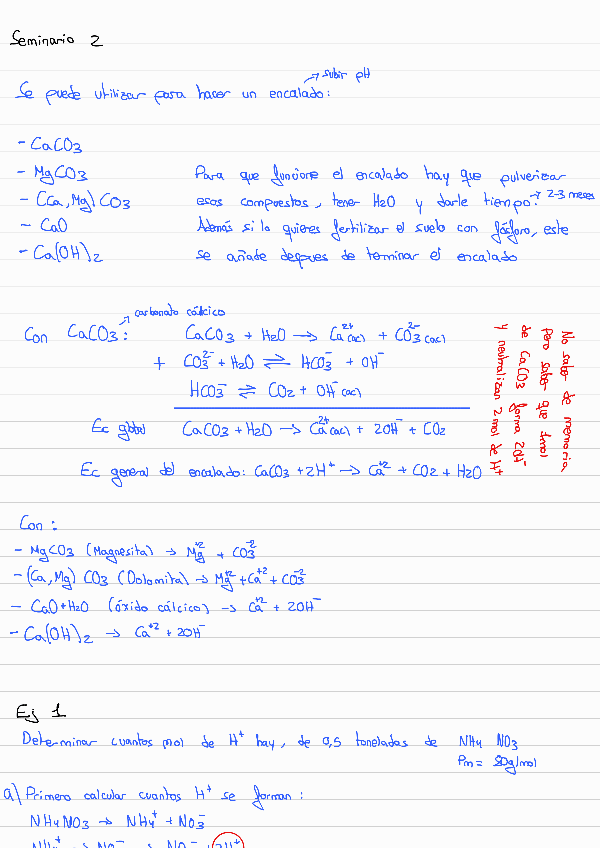 Seminario 2
→ subir pH
Se puede utilizar para hacer un encalado:
- CaCO3
- MgCO3
- (Ca, Mg) CO3
- CaO
- Ca(OH)2
Para que funcione el encalado hay que pulverizar
esos compuestos, tener H2O y darle tiempo. → 2-3 meses
Además si lo quieres fertilizar el suelo con fósforo, este
se añade depques de terminar el encalado
→ carbonato cálcico
Con CaCO3: CaCO3 + H2O → Ca2+(ac) + CO3 2-(ac)
+ CO3 2- + H2O ⇌ HCO3- + OH-
HCO3- ⇌ CO2 + OH-(ac)
Ec glbal CaCO3 + H2O → Ca2+(ac) + 2OH- + CO2
Ec general del encalado: CaCO3 + 2H+ → Ca+2 + CO2 + H2O
No saber de memoria,
pero saber que 1mol
de CaCO3 forma 2OH-
y neutralizar 2 mol de H+
Con:
- MgCO3 (Magnesita) → Mg+2 + CO3-2
- (Ca, Mg) CO3 (Dolomita) → Mg+2 + Ca+2 + CO3-2
- CaO + H2O (óxido cálcico) → Ca+2 + 2OH-
- Ca(OH)2 → Ca+2 + 2OH-
Ej 1
Determinar cuantos mol de H+ hay, de 0,5 toneladas de NH4 NO3
Pm = 80g/mol
a) Primero calcular cuantos H+ se forman:
NH4NO3 → NH4+ + NO3-